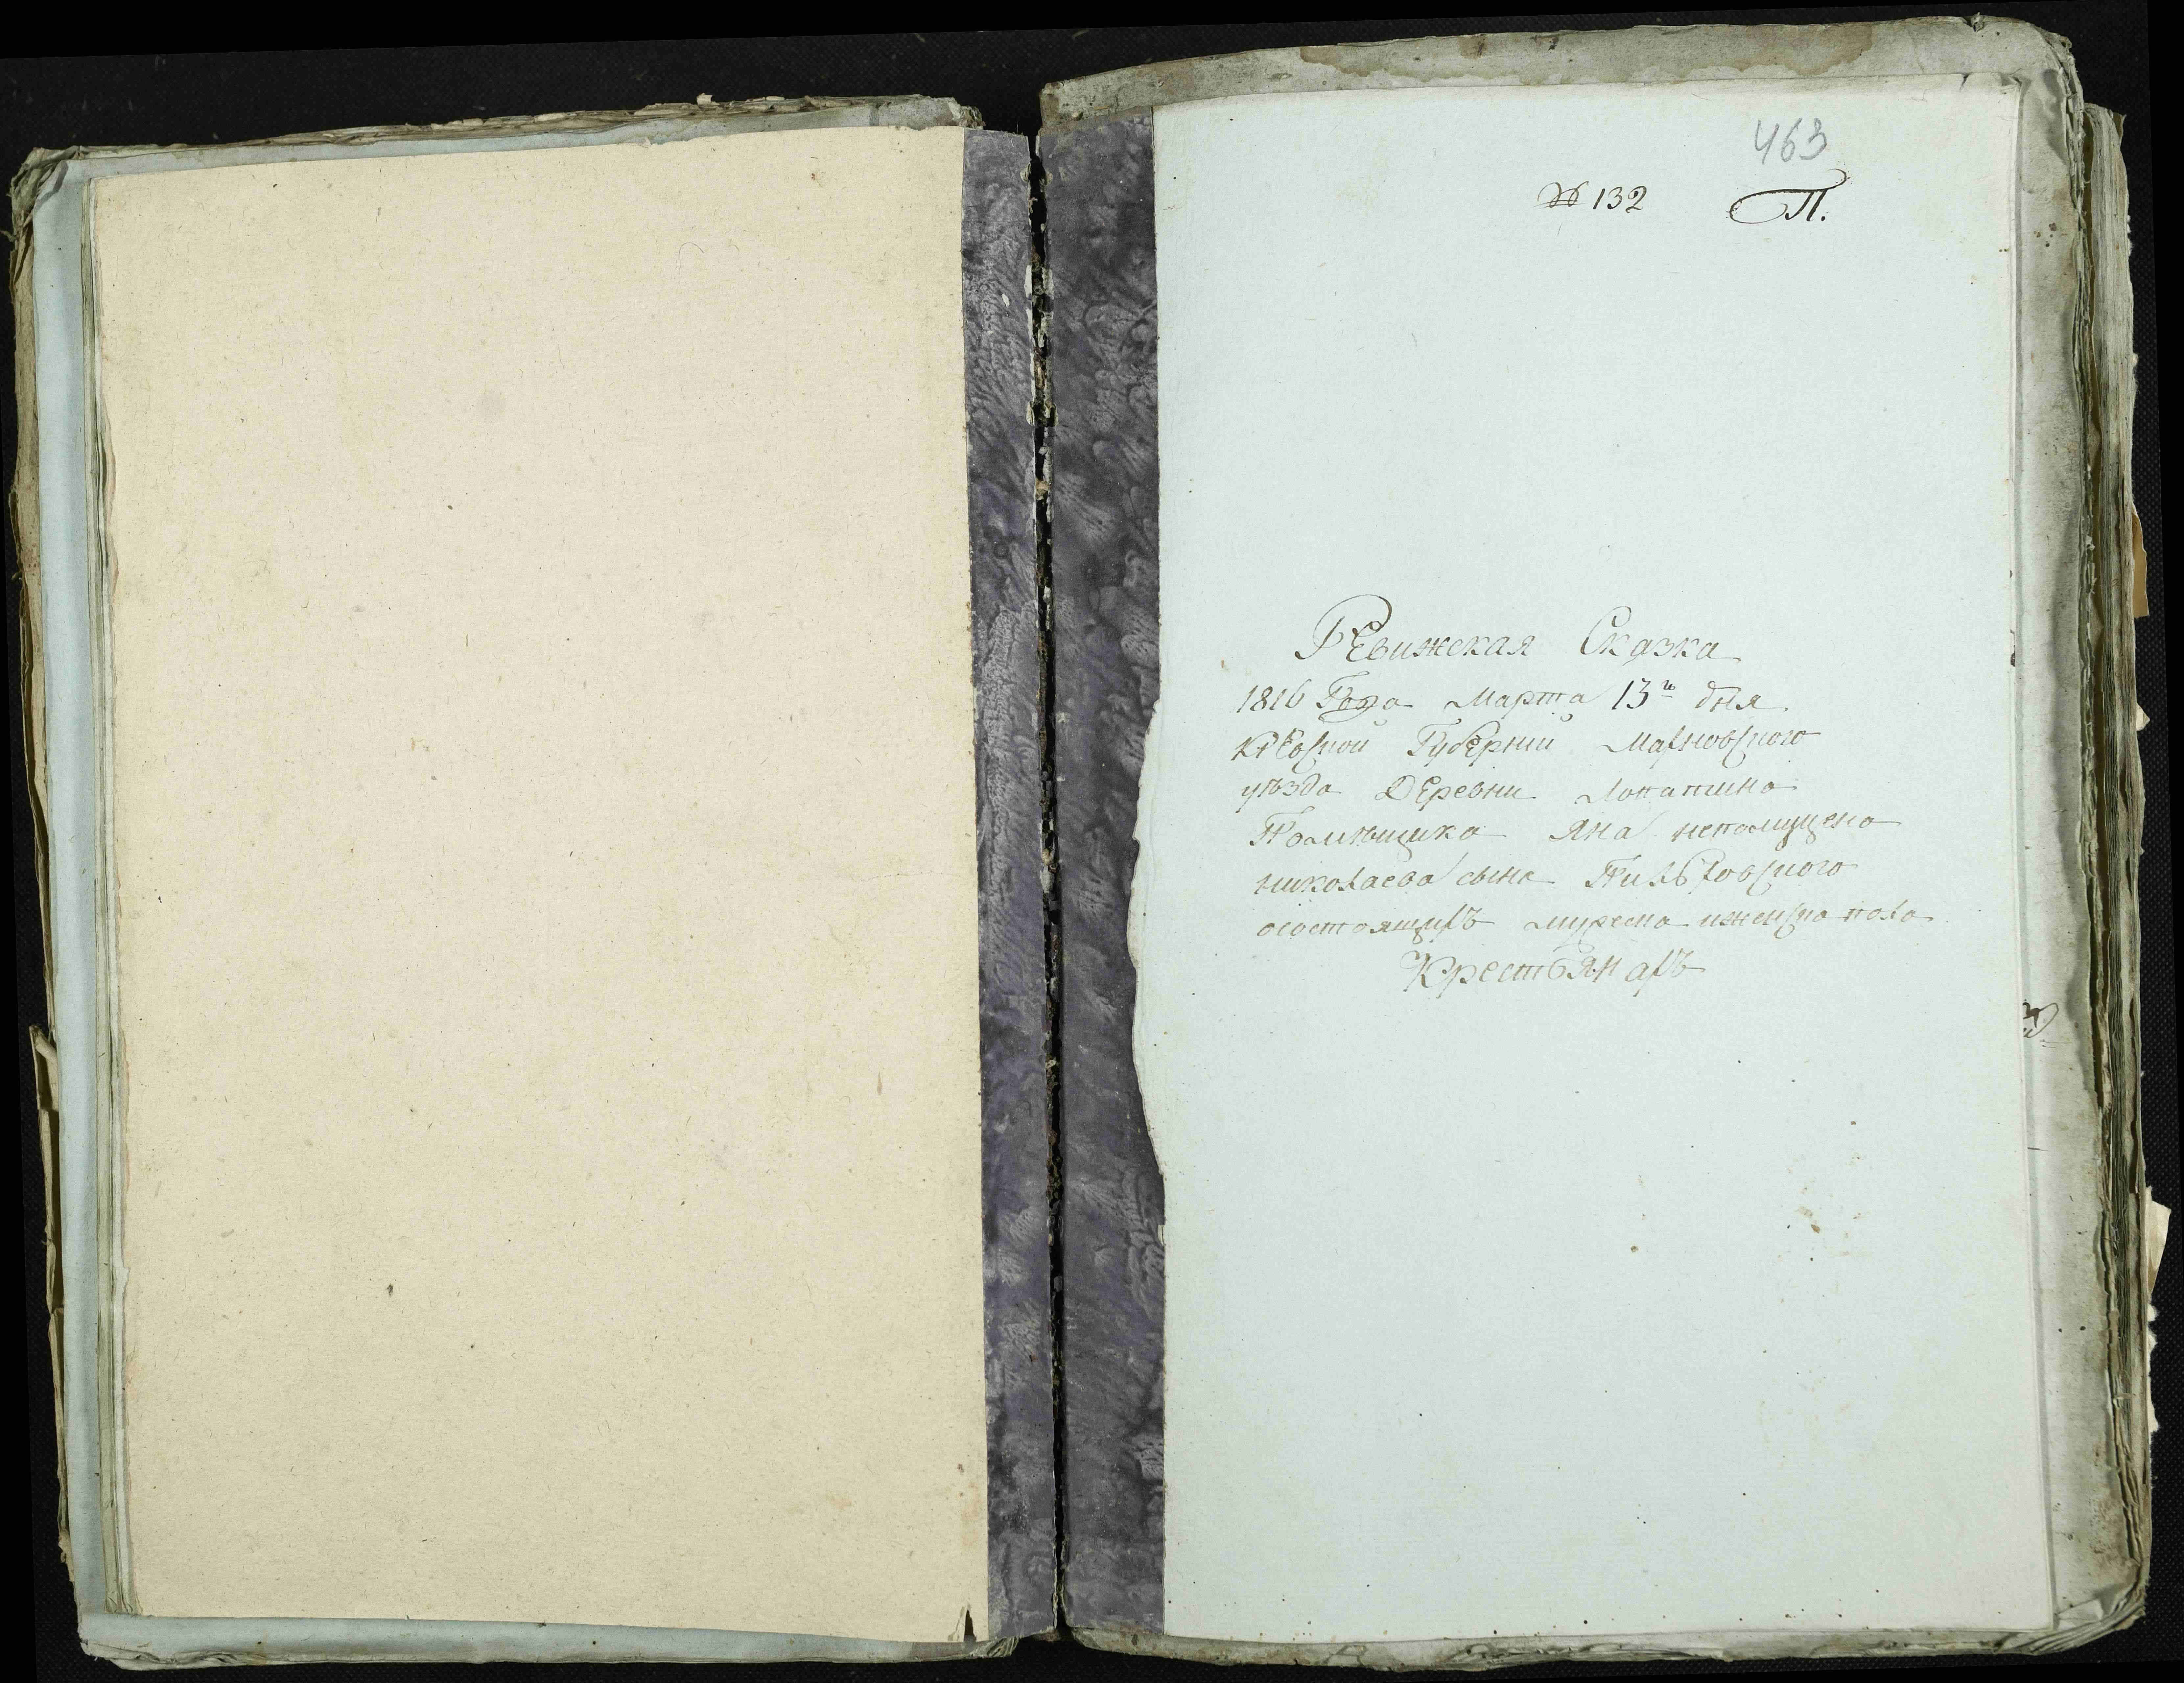 463
№ 132 П.
Ревижская Сказка
1816 Года Марта 13го дня
Кіевской Губернии Махновского
уѣзда Деревни Лопатина
Помѣщика Яна непомуцена
николаева сына Пильховского
осостоящихъ мужеска иженска пола
Крестьянахъ